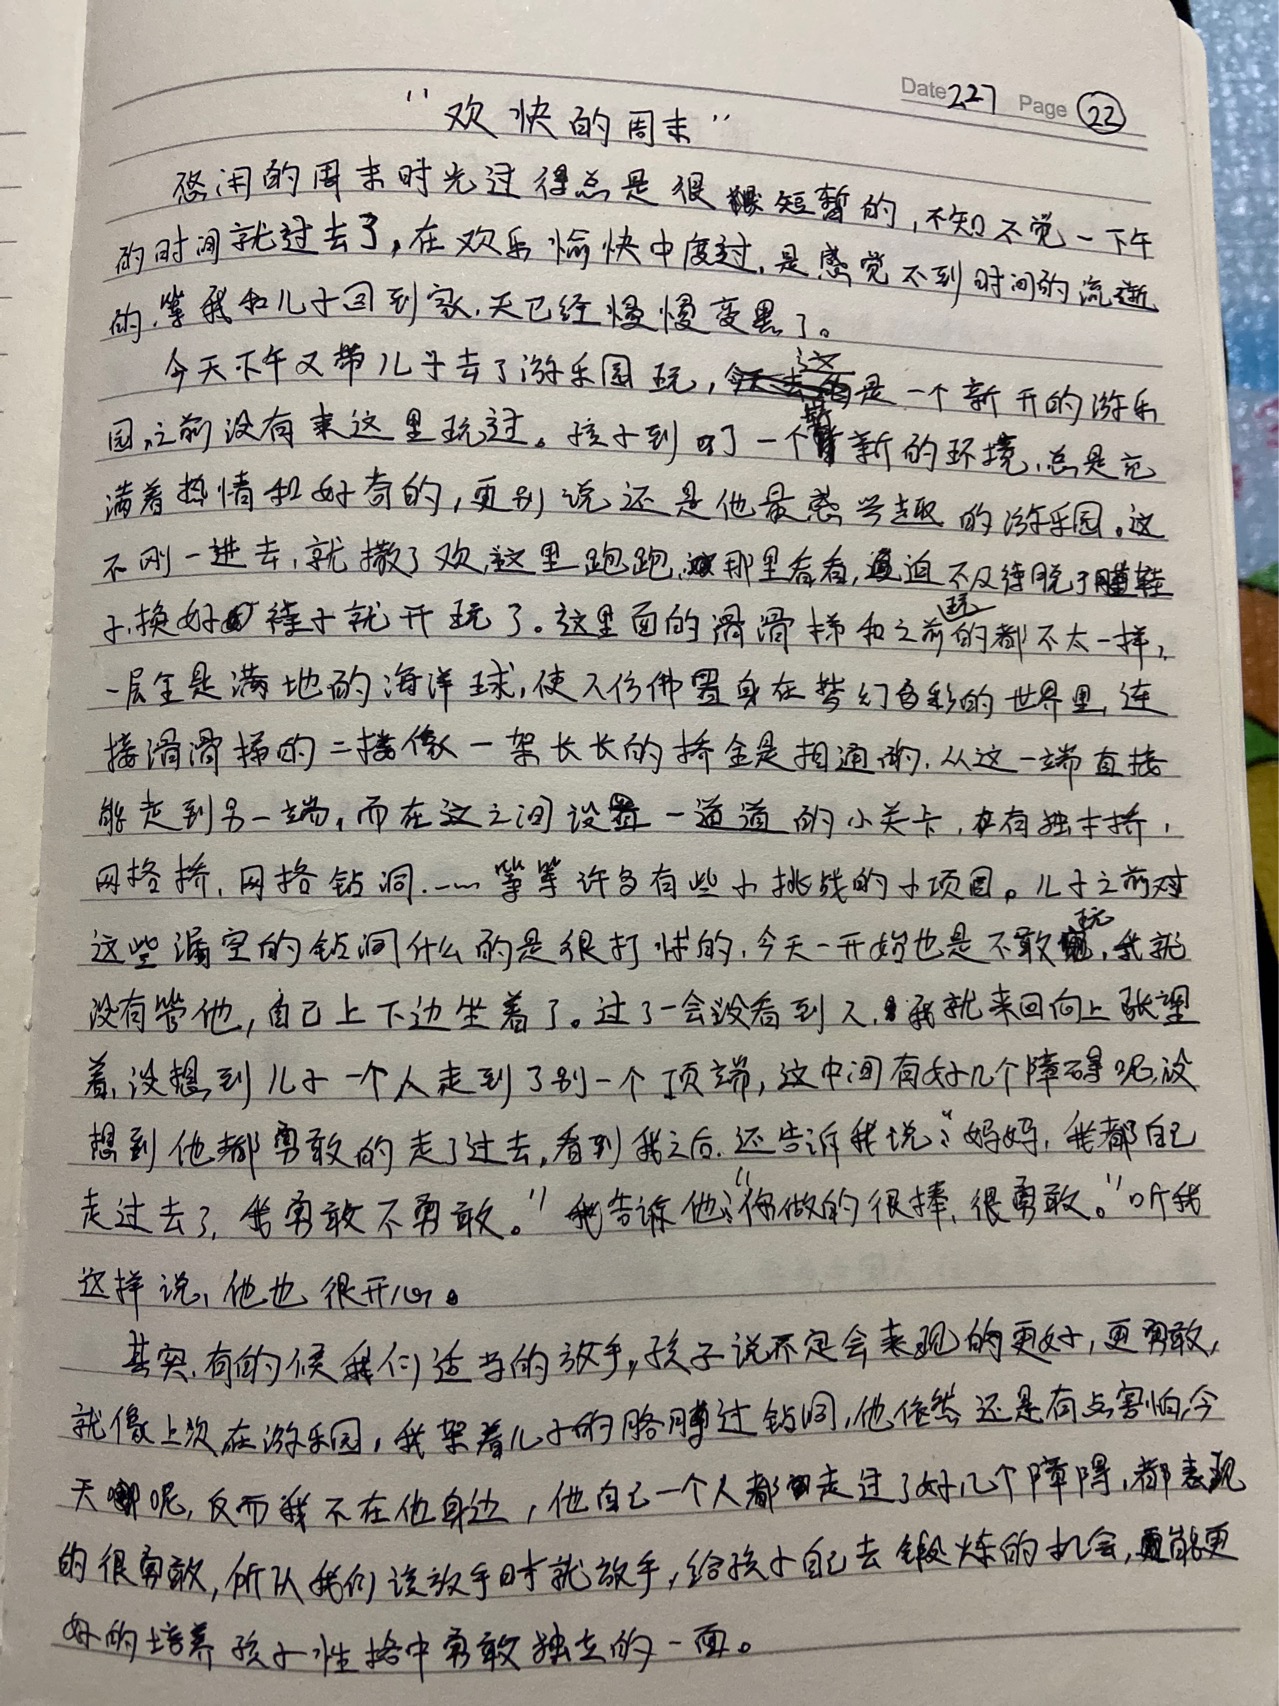 Date 227 Page 22
"欢快的周末"
悠闲的周末时光过得总是很短暂的,不知不觉一下午
的时间就过去了,在欢乐愉快中度过,是感觉不到时间的流逝
的,等我和儿子回到家,天已经慢慢变黑了。
今天下午又带儿子去了游乐园玩,这是一个新开的游乐
园,之前没有来这里玩过。孩子到了一个新的环境,总是充
满着热情和好奇的,更别说还是他最感兴趣的游乐园。这
不刚一进去,就撒了欢,这里跑跑,那里看看,迫不及待脱了鞋
子,换好袜子就开玩了。这里面的滑滑梯和之前玩的都不太一样,
一层全是满地的海洋球,使人仿佛置身在梦幻色彩的世界里,连
接滑滑梯的二楼像一架长长的桥全是相通的,从这一端直接
能走到另一端,而在这之间设置一道道的小关卡,有独木桥,
网格桥,网格钻洞……等等许多有些小挑战的小项目。儿子之前对
这些漏空的钻洞什么的是很打怵的,今天一开始也是不敢玩,我就
没有管他,自己上下边坐着了。过了一会没看到人,我就来回向上张望
着,没想到儿子一个人走到了别一个顶端,这中间有好几个障碍呢,没
想到他都勇敢的走了过去,看到我之后,还告诉我说:"妈妈,我都自己
走过去了,我勇敢不勇敢。"我告诉他:"你做的很棒,很勇敢。"听我
这样说,他也很开心。
其实,有的候我们适当的放手,孩子说不定会表现的更好,更勇敢,
就像上次在游乐园,我架着儿子的胳膊过钻洞,他依然还是有点害怕,今
天呢,反而我不在他身边,他自己一个人都走过了好几个障碍,都表现
的很勇敢,所以我们该放手时就放手,给孩子自己去锻炼的机会,能更
好的培养孩子性格中勇敢独立的一面。